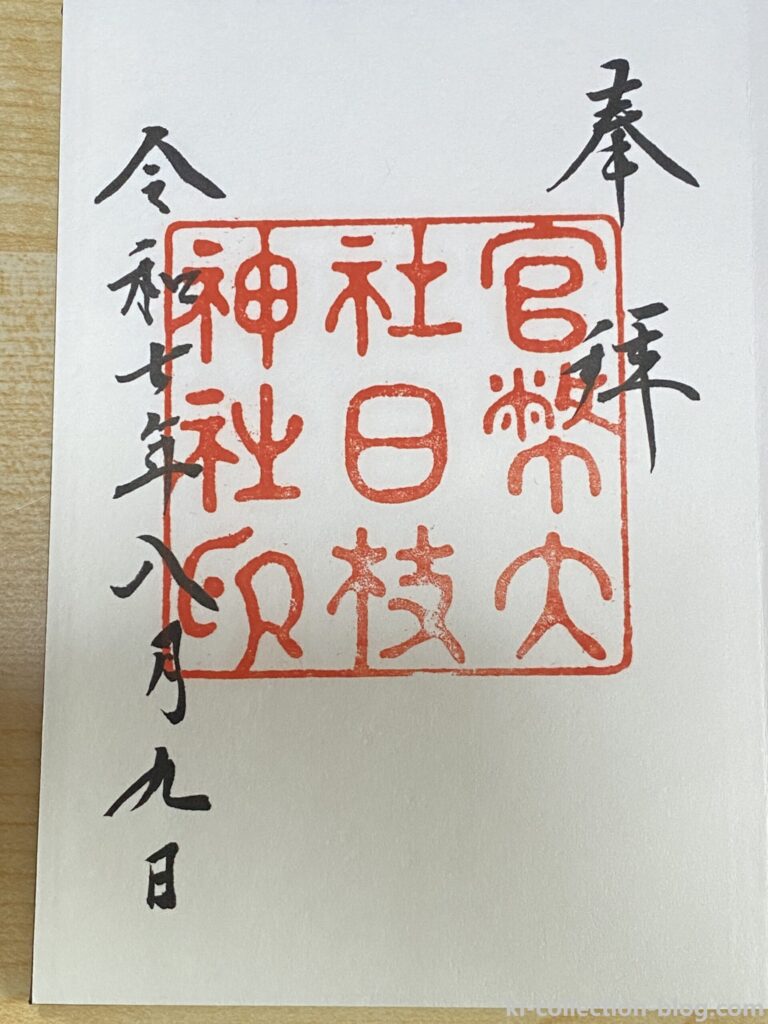 奉拝
官幣大
社日枝
神社印
令和七年八月九日
kr-collection-blog.com